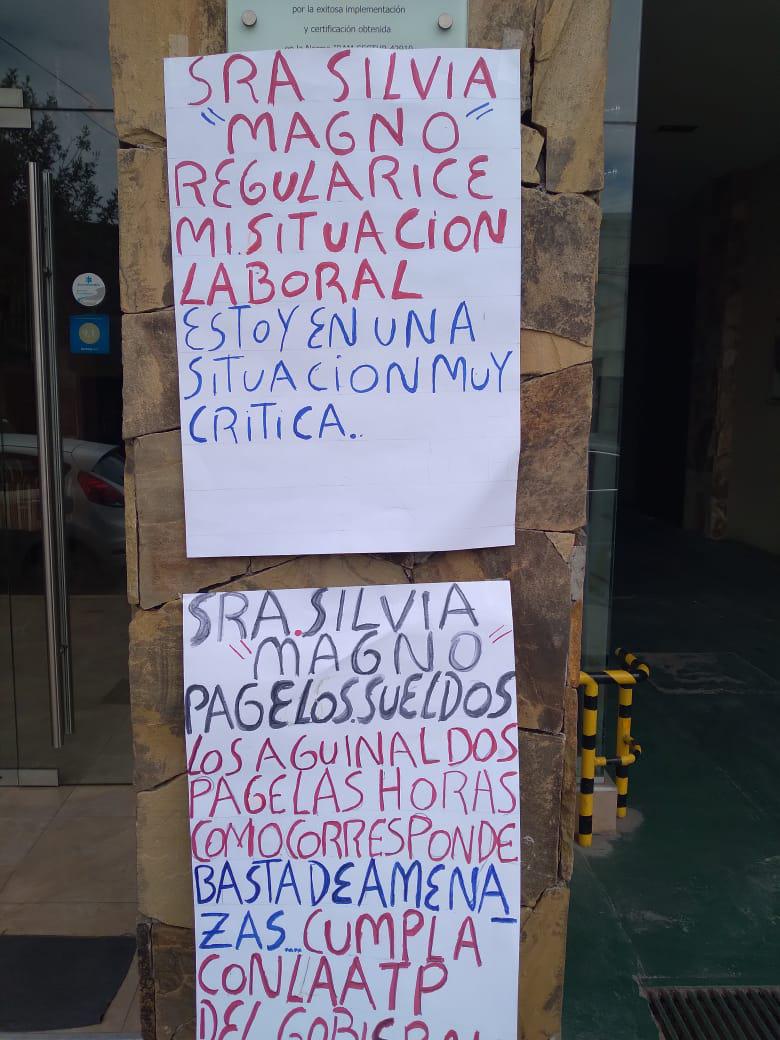 por la exitosa implementación
y certificación obtenida
en la Norma IRAM SECTUR 42910
SRA SILVIA
"MAGNO"
REGULARICE
MI.SITUACION
LABORAL
ESTOY EN UNA
SITUACION MUY
CRITICA..
SRA.SILVIA
"MAGNO"
PAGE LOS.SUELDOS
LOS AGUINALDOS
PAGE LAS HORAS
COMO CORRESPONDE
BASTA DE AMENA_
ZAS....CUMPLA
CON LA ATP
DEL